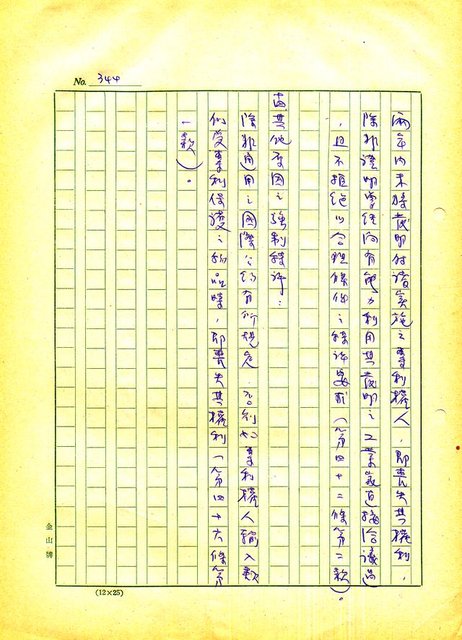 No. 344
兩年內未將發明付諸實施之專利權人，即喪失其權利，
除非證明曾經向有能力利用其發明之工業製造接洽議過
，且不拒絕以合理條件之特許要求（第四十二條第二款）。
由其他原因之強制特許：
除非適用之國際公約有所規定，否則如專利權人輸入類
似受專利保護之物品時，即喪失其權利（第四十六條第
一款）。
金山牌
(12×25)